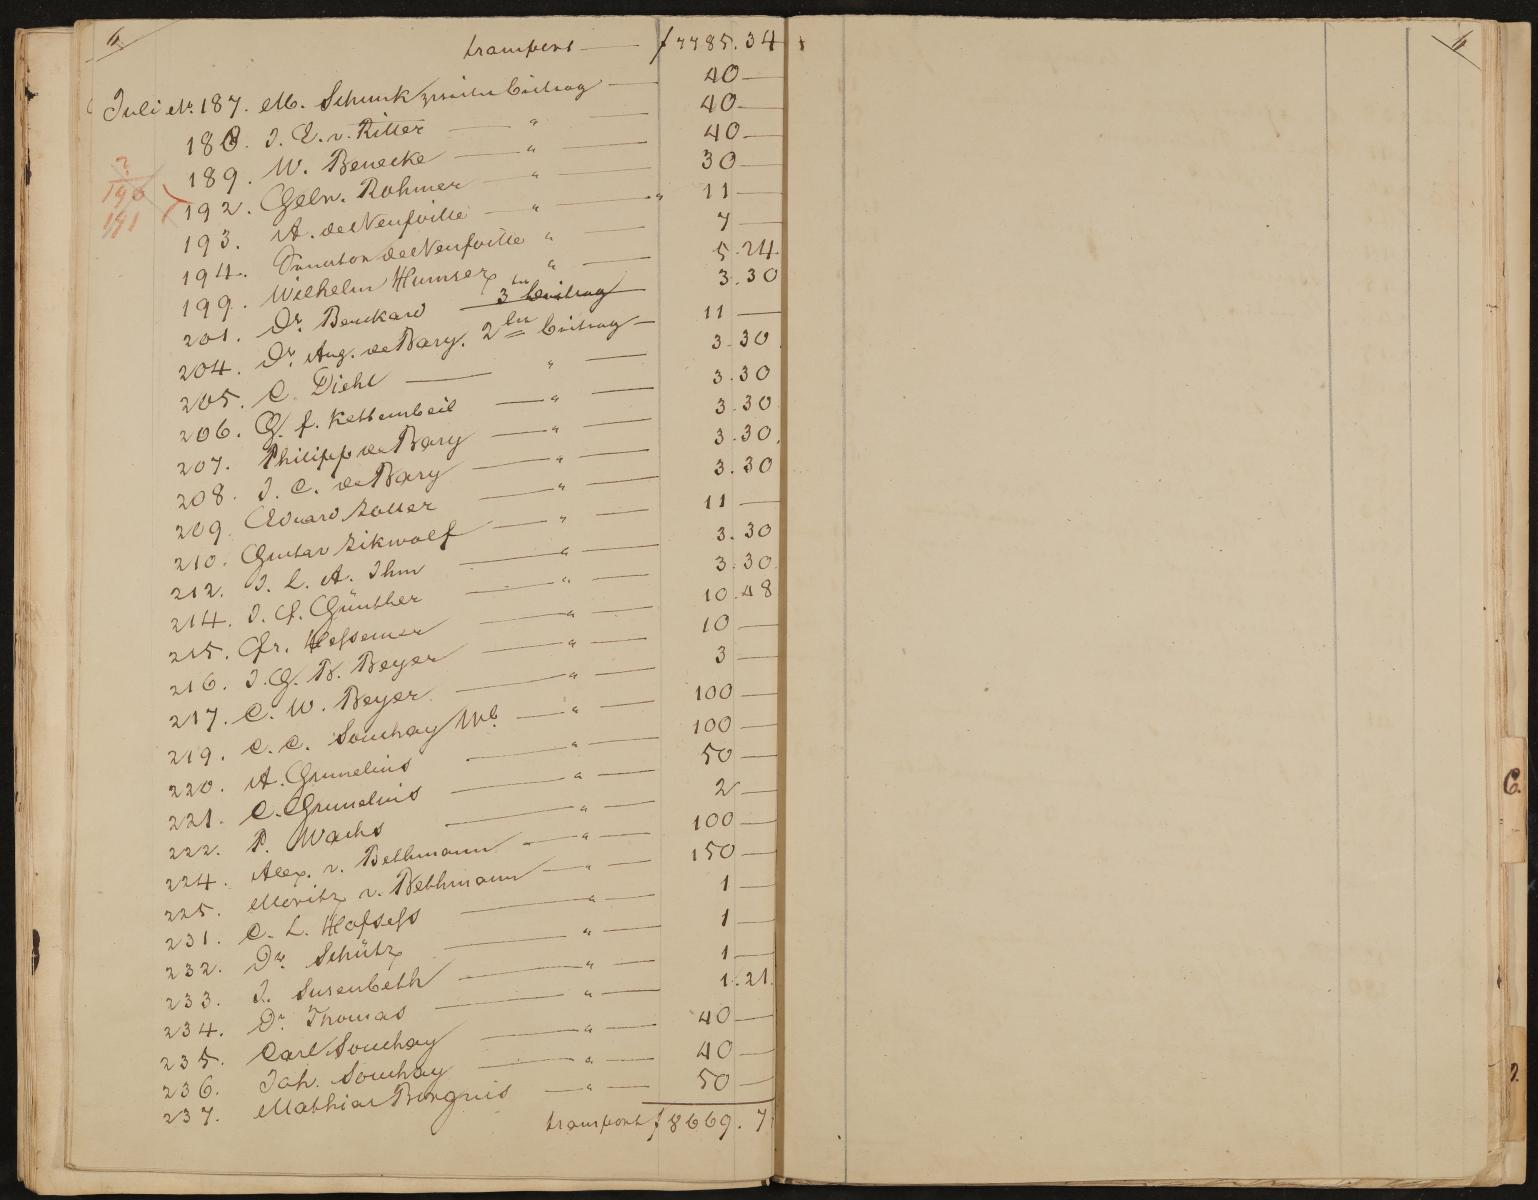 6
transport — f 7785.34
Juli No. 187. M. Schunk zweiter Beitrag — 40 —
188. J. E. v. Ritter — " — 40 —
189. W. Benecke — " — 40 —
?
190
191
192. Gebr. Rohmer — " — 30 —
193. A. de Neufville — " — " 11 —
194. Senator de Neufville " — 7
199. Wilhelm Humser " — 5.24
201. Dr. Benckard 3ter Beitrag 3.30
204. Dr. Aug. de Bary. 2ter Beitrag — 11 —
205. C. Diehl — " — 3.30
206. G. f. Kettembeil — " — 3.30
207. Philipp de Bary — " — 3.30
208. J. C. de Bary — " — 3.30
209. Eduard Zoller — " — 3.30
210. Gustav Zikwolf — " — 11 —
212. J. L. A. Ihm — " — 3.30
214. J. f. Günther — " — 3.30
215. Fr. Hessemer — " — 10.48
216. J. G. B. Beyer — " — 10 —
217. C. W. Beyer — " — 3 —
219. C. C. Souchay — " — 100 —
220. A. Grunelius — " — 100 —
221. C. Grunelius — " — 50 —
222. P. Wachs — " — 2 —
224. Alex. v. Bethmann — " — 100 —
225. Moritz v. Bethmann — " — 150 —
231. C. L. Hofsess — " — 1 —
232. Dr. Schütz — " — 1 —
233. J. Susenbeth — " — 1 —
234. Dr. Thomas — " — 1.21
235. Carl Souchay — " — 40 —
236. Joh. Souchay — " — 40 —
237. Mathias Borgnis — " — 50 —
transport f 8669.7
6
C.